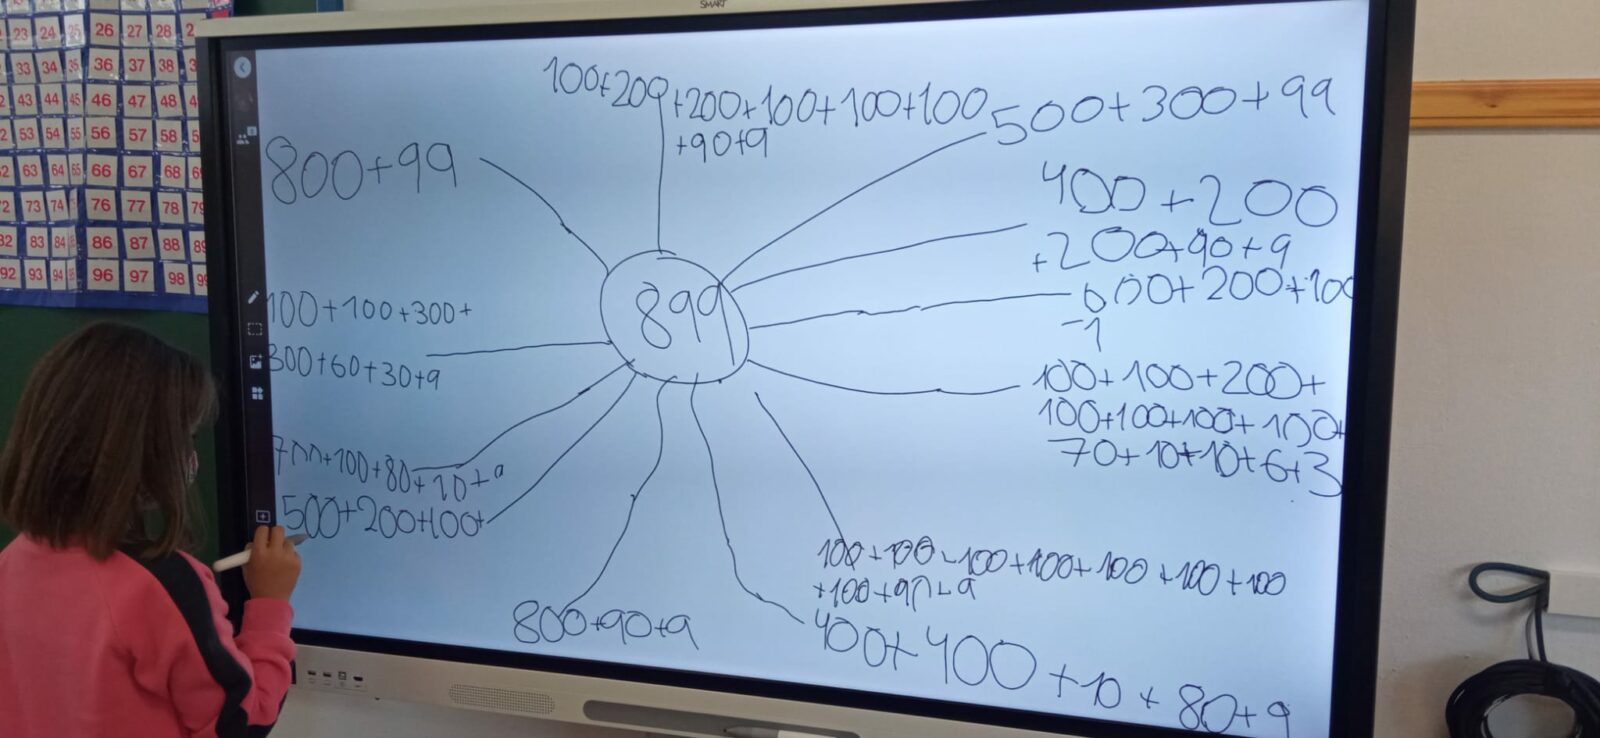 SMART
100+200+200+100+100+100
+90+9
500+300+99
800+99
400+200
+200+90+9
600+200+100
-1
899
100+100+300+
300+60+30+9
100+100+200+
100+100+100+100+
70+10+10+6+3
700+100+80+10+9
500+200+100+
100+100+100+100+100+100+100
+100+90+9
800+90+9
400+400+10+80+9
23 24 25 26 27 28 2
33 34 35 36 37 38 3
2 43 44 45 46 47 48 4
2 53 54 55 56 57 58 5
2 63 64 65 66 67 68 6
2 73 74 76 77 78 79
82 83 84 86 87 88 89
92 93 94 96 97 98 99